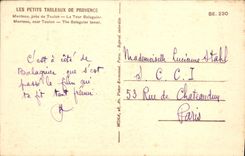 LES PETITS TABLEAUX DE PROVENCE
BE. 230
Martimo, près de Toulon - La Tour Balaguier.
Martimo, near Toulon - The Balaguier tower.
C'est à côté de
Balaguier que s'est
passé le film qui
t'a fit tant frémir.
Mademoiselle Luciane Stahl
S.C.C.I
53 Rue de Chateaudun
Paris